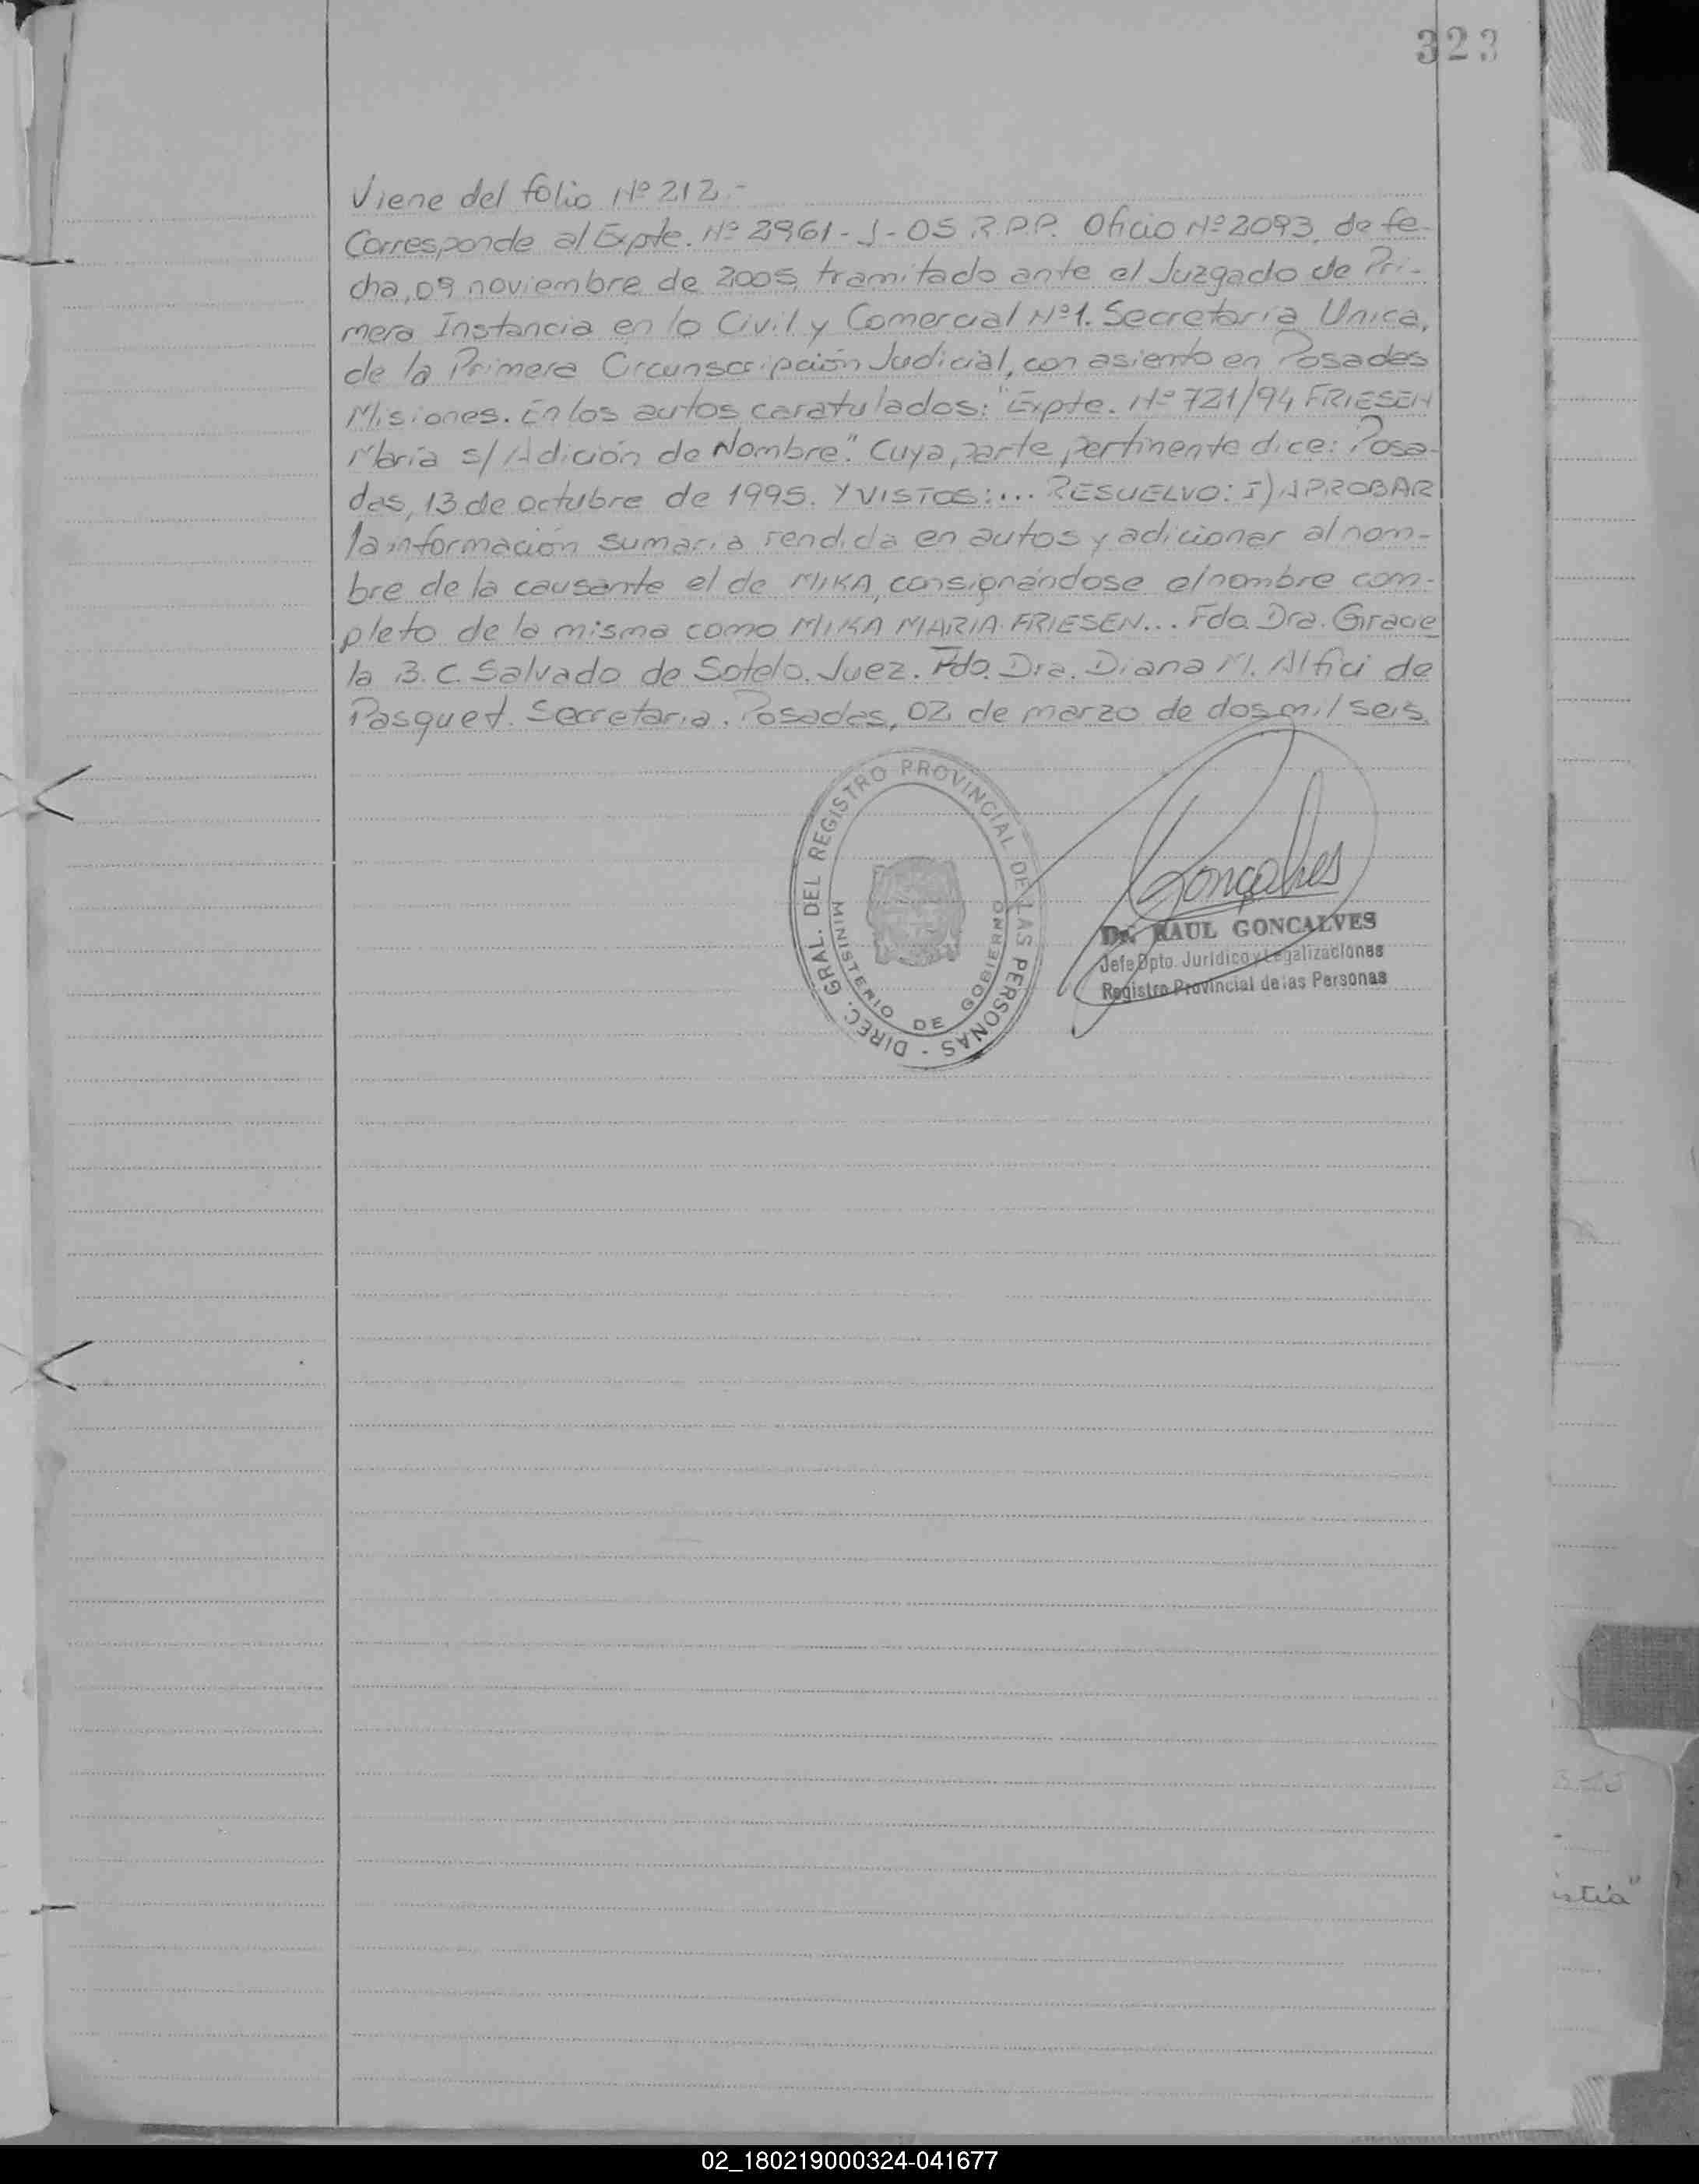 323
Viene del folio Nº 212.-
Corresponde al Expte. Nº 2961-J-05 R.P.P. Oficio Nº 2093, de fe-
cha, 09 noviembre de 2005, tramitado ante el Juzgado de Pri-
mera Instancia en lo Civil y Comercial Nº1. Secretaria Unica,
de la Primera Circunscripción Judicial, con asiento en Posadas
Misiones. En los autos caratulados: "Expte. Nº 721/94 FRIESEN
María s/ Adición de Nombre". Cuya parte pertinente dice: Posa-
das, 13 de octubre de 1995. Y VISTOS:... RESUELVO: I) APROBAR
la información sumaria rendida en autos y adicionar al nom-
bre de la causante el de MIKA, consignándose el nombre com-
pleto de la misma como MIKA MARIA FRIESEN... Fdo. Dra. Gracie
la B. C. Salvado de Sotelo. Juez. Fdo. Dra. Diana M. Alfici de
Pasquet. Secretaria. Posadas, 02 de marzo de dos mil seis.
DIREC. GRAL. DEL REGISTRO PROVINCIAL DE LAS PERSONAS -
MINISTERIO DE GOBIERNO
Goncalves
Dr. RAUL GONCALVES
Jefe Dpto. Jurídico y Legalizaciones
Registro Provincial de las Personas
istia"
02_180219000324-041677